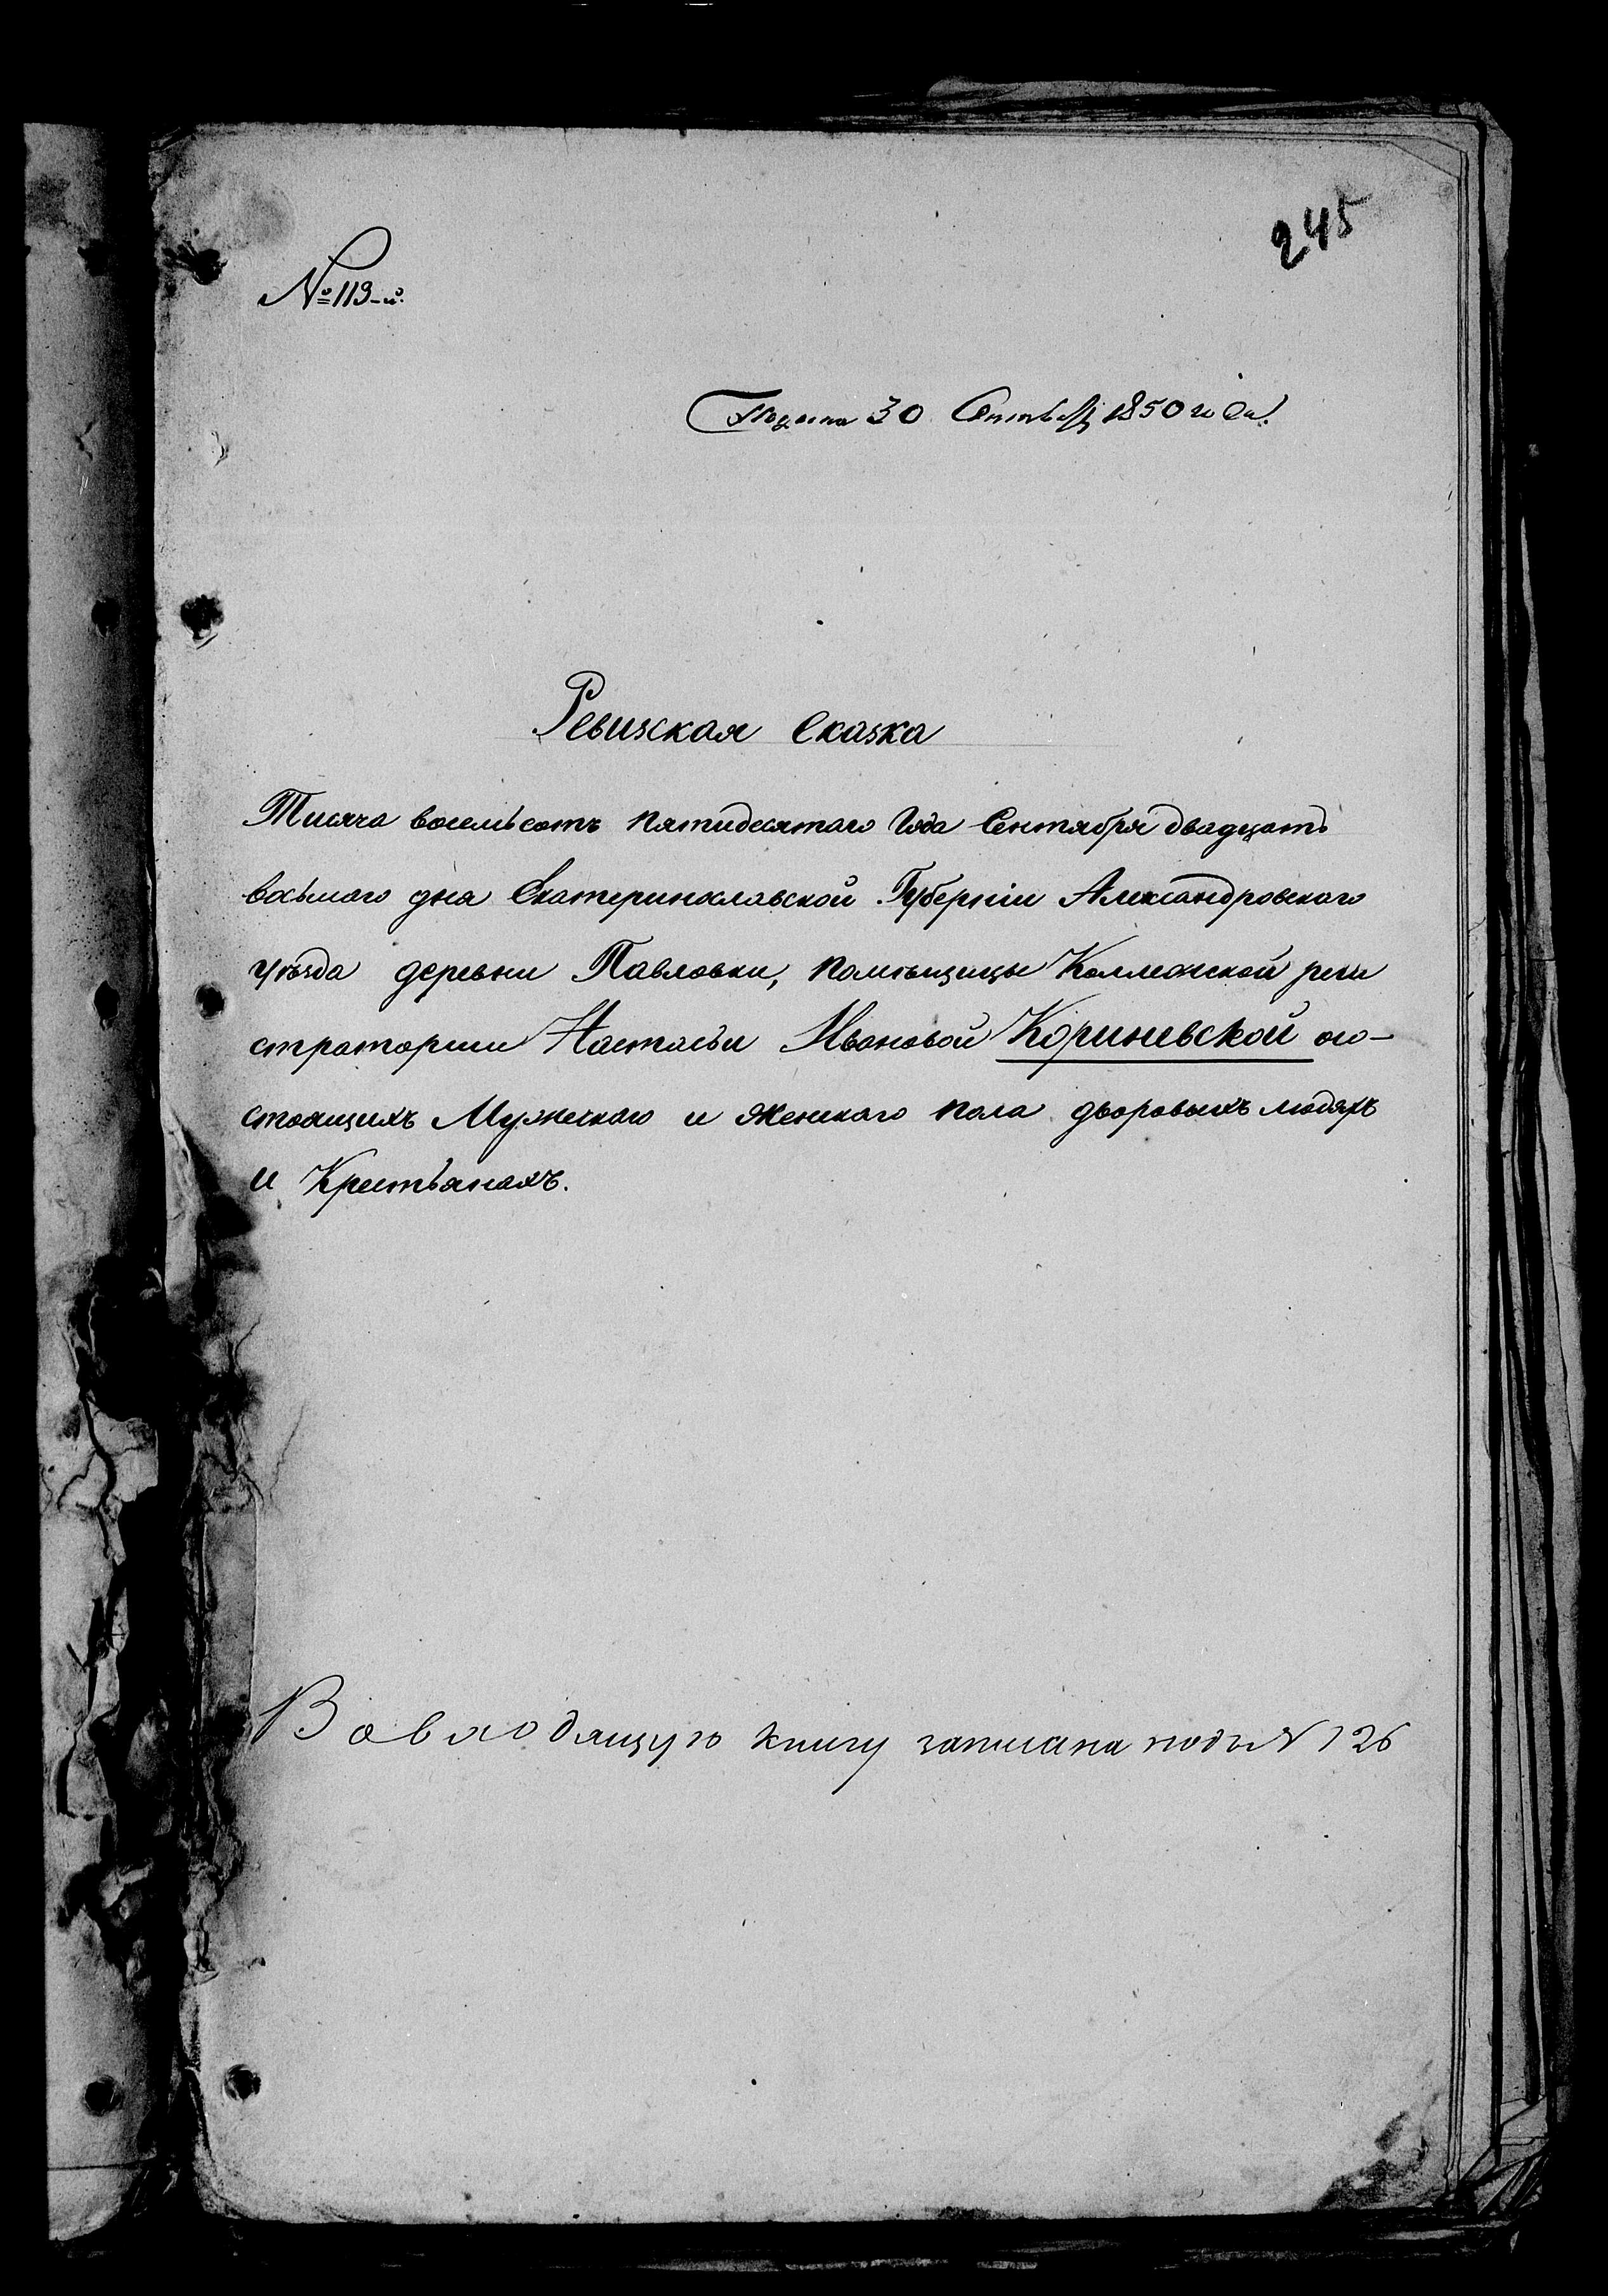 245
№ 113-й.
Подана 30 Сентября 1850 года.
Ревизская Сказка
Тисяча восемьсотъ пятидесятого Года Сентября двадцать
восьмого дня Екатеринославской Губерніи Александровского
уѣзда деревни Павловки, помѣщицы Коллежской реги
страторши Настасьи Ивановой Кориневской осо-
стоящихъ Мужеского и Женского пола дворовыхъ людяхъ
и Крестьянахъ.
Во входящую книгу записана подъ № 126